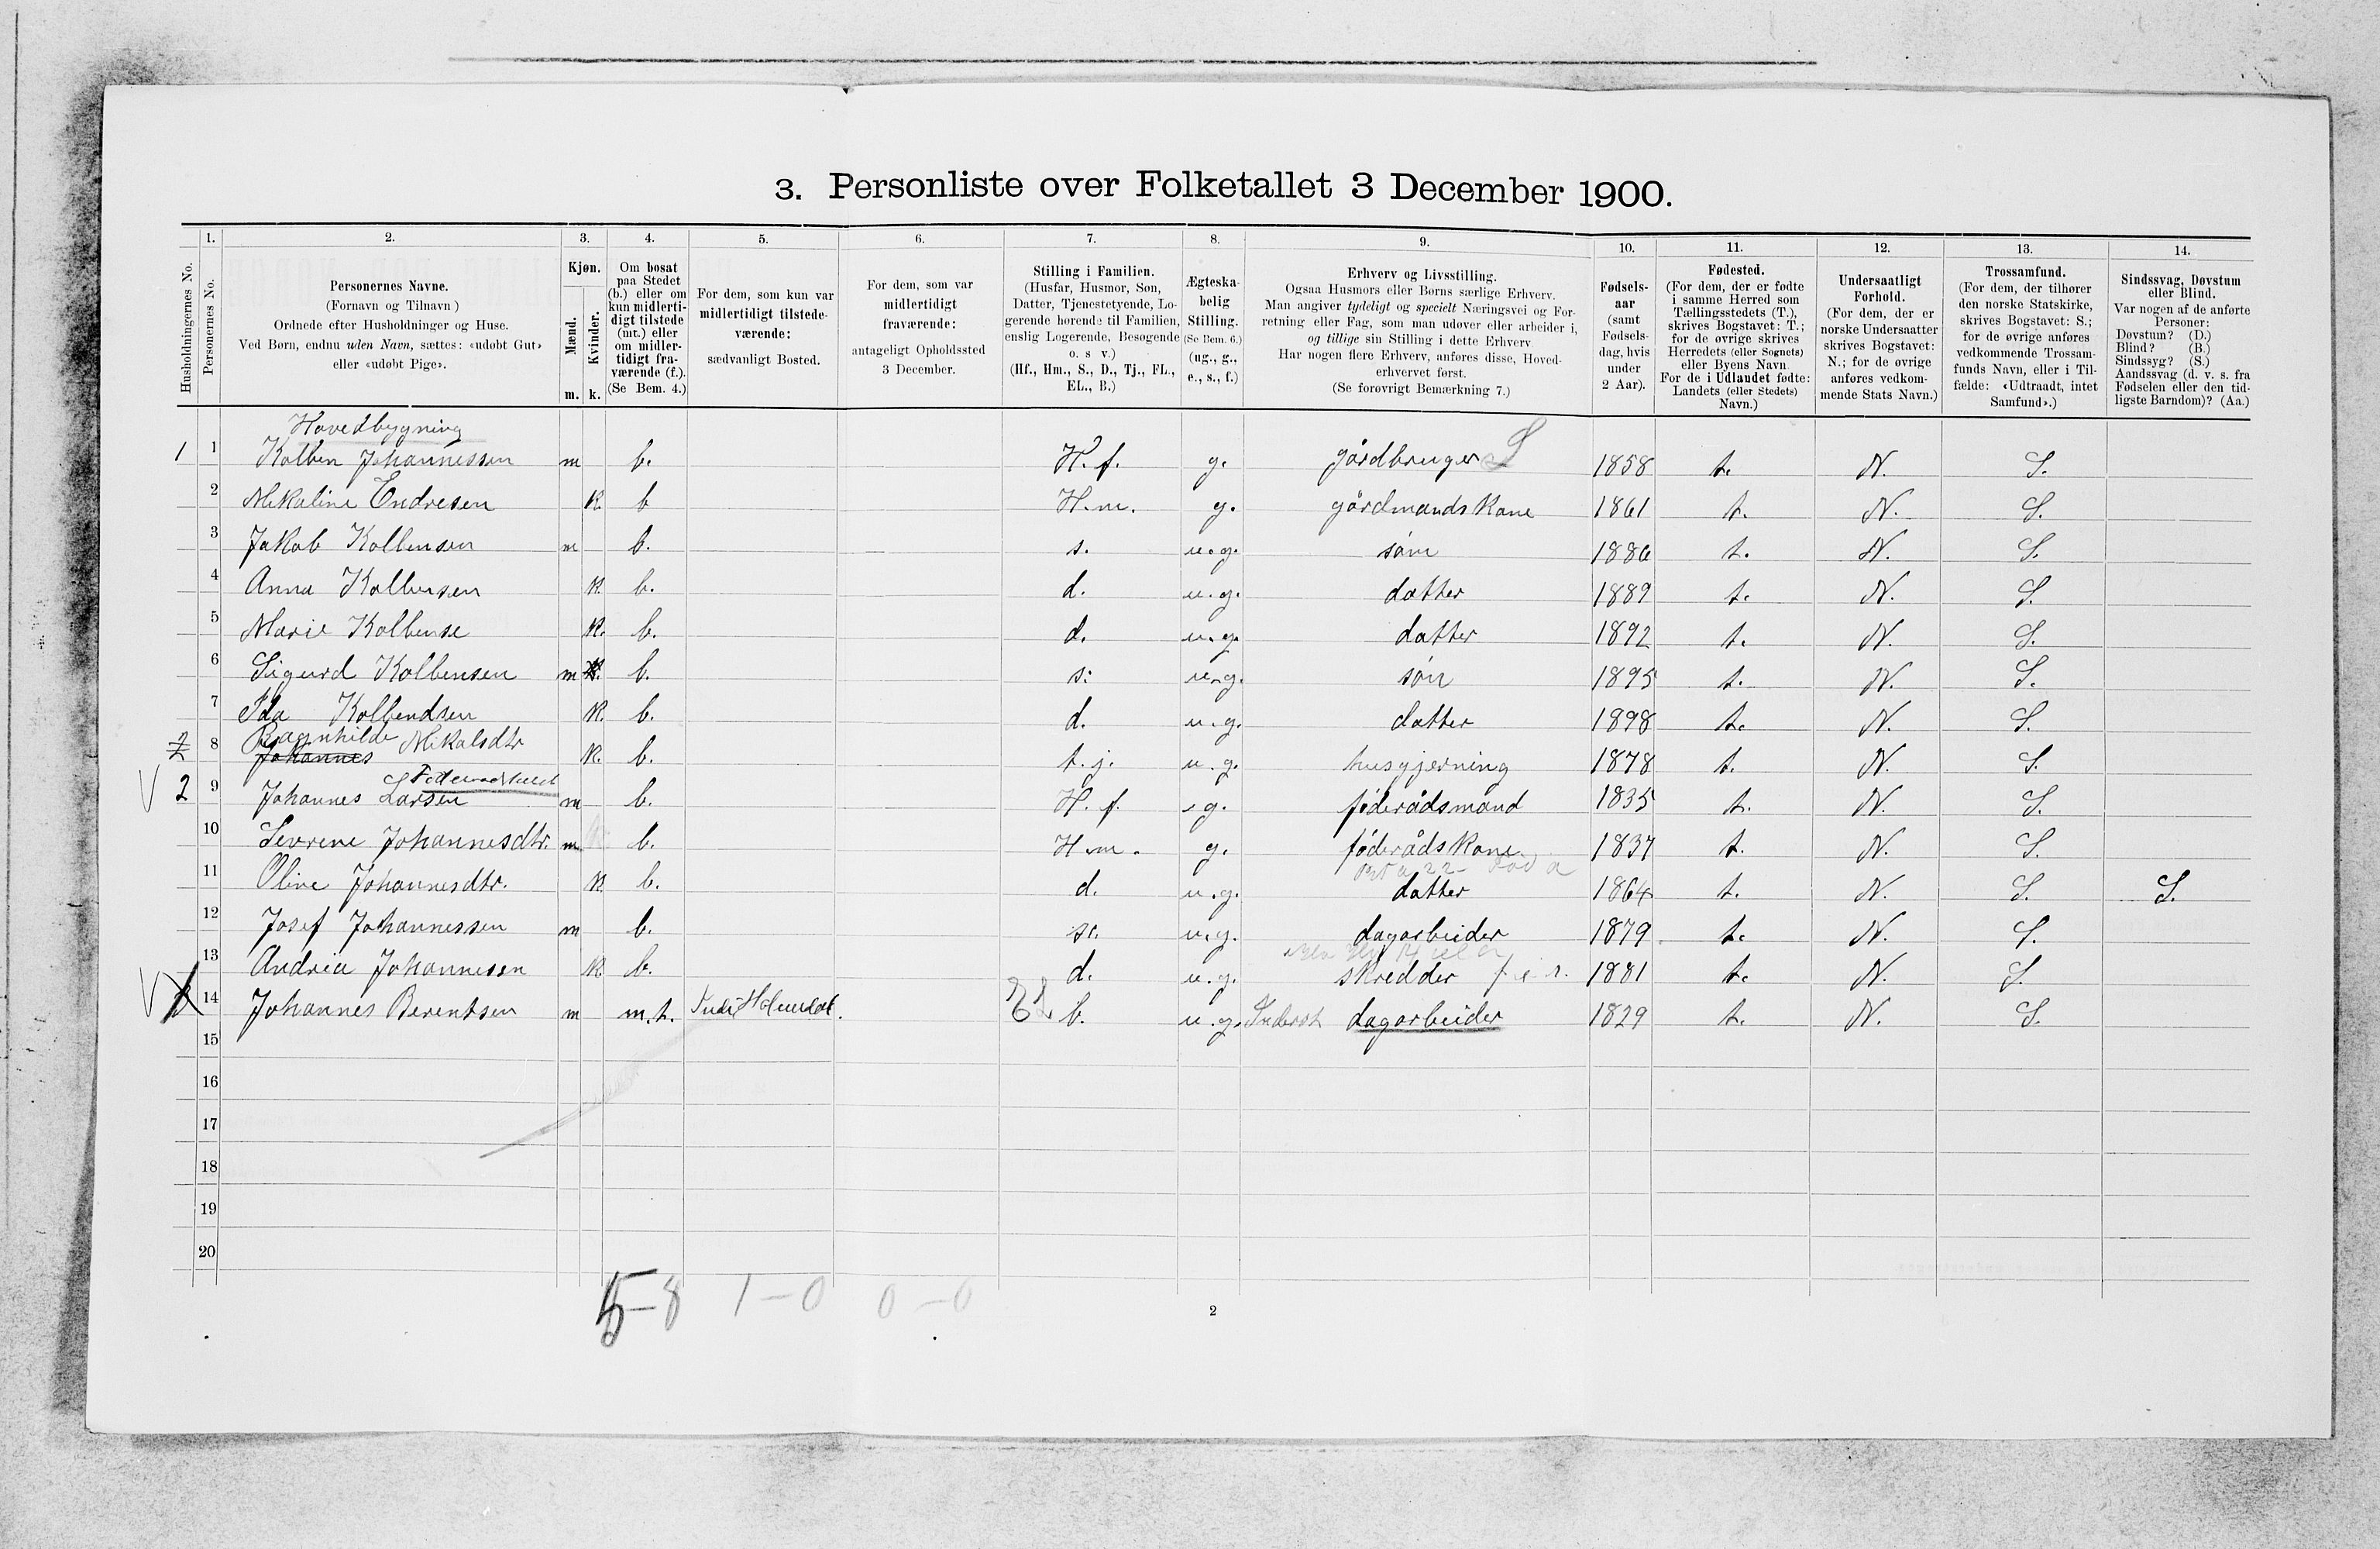 3. Personliste over Folketallet 3 December 1900.
1. 2. 3. 4. 5. 6. 7. 8. 9. 10. 11. 12. 13. 14.
Husholdningernes No.
Personernes No.
Personernes Navne.
(Fornavn og Tilnavn)
Ordnede efter Husholdninger og Huse.
Ved Børn, endnu uden Navn, sættes: «udøbt Gut»
eller «udøbt Pige».
Kjøn.
Mænd.
Kvinder.
m. k.
Om bosat
paa Stedet
(b.) eller om
kun midlerti-
digt tilstede
(mt.) eller
om midler-
tidigt fra-
værende (f.).
(Se Bem. 4.)
For dem, som kun var
midlertidigt tilstede-
værende:
sædvanligt Bosted.
For dem, som var
midlertidigt
fraværende:
antageligt Opholdssted
3 December.
Stilling i Familien.
(Husfar, Husmor, Søn,
Datter, Tjenestetyende, Lo-
gerende hørende til Familien,
enslig Logerende, Besøgende
o. s v.)
(Hf., Hm., S., D., Tj., FL.,
EL., B.)
Ægteska-
belig
Stilling.
(Se Bem. 6.)
(ug., g.,
e., s., f.)
Erhverv og Livsstilling.
Ogsaa Husmors eller Børns særlige Erhverv.
Man angiver tydeligt og specielt Næringsvei og For-
retning eller Fag, som man udøver eller arbeider i,
og tillige sin Stilling i dette Erhverv
Har nogen flere Erhverv, anføres disse, Hoved-
erhvervet først.
(Se forøvrigt Bemærkning 7.)
Fødsels-
aar
(samt
Fødsels-
dag, hvis
under
2 Aar).
Fødested.
(For dem, der er fødte
i samme Herred som
Tællingsstedets (T.),
skrives Bogstavet: T.;
for de øvrige skrives
Herredets (eller Sognets)
eller Byens Navn
For de i Udlandet fødte:
Landets (eller Stedets)
Navn.)
Undersaatligt
Forhold.
(For dem, der er
norske Undersaatter
skrives Bogstavet:
N.; for de øvrige
anføres vedkom-
mende Stats Navn.)
Trossamfund.
(For dem, der tilhører
den norske Statskirke,
skrives Bogstavet: S.;
for de øvrige anføres
vedkommende Trossam-
funds Navn, eller i Til-
fælde: «Udtraadt, intet
Samfund».)
Sindssvag, Døvstum
eller Blind.
Var nogen af de anførte
Personer:
Døvstum? (D.)
Blind? (B.)
Sindssyg? (S.)
Aandssvag (d. v. s. fra
Fødselen eller den tid-
ligste Barndom)? (Aa.)
Hovedbygning
1 1 Kolben Johannessen m b. H.f. g. gårdbruger S 1858 t. N. S.
2 Mikaline Endresen k b H.m. g. gårdmandskone 1861 t. N. S.
3 Jakob Kolbensen m b. s. u.g. søn 1886 t. N. S.
4 Anna Kolbensen k. b. d. u.g. datter 1889 t. N. S.
5 Marie Kolbense k. b. d. u.g. datter 1892 t. N. S.
6 Sigurd Kolbensen m k. b. s: u.g. søn 1895 t. N. S.
7 Ida Kolbendsen k. b. d. u.g. datter 1898 t. N. S.
Ragnhilde Mikalsdtr
2 8 Johannes k. b. t.j. u.g. husgjerning 1878 t. N. S.
V 2 9 Johannes Larsen m b. H.f. g. føderådsmand 1835 t. N. S.
10 Sevrine Johannesdtr. m b. H.m. g. føderådskone 1837 t. N. S.
11 Oline Johannesdtr. k b. d. u.g. datter 1864 t. N. S. S.
12 Josef Johannessen m b. s. u.g. dagarbeider 1879 t. N. S.
13 Andrea Johannesen k b. d. u.g. skredder 1881 t. N. S.
V 14 Johannes Berentsen m m.t. b. u.g. Inderst dagarbeider 1829 t. N. S.
15
16
17
18
19
20
5-8 1-0 0-0
2